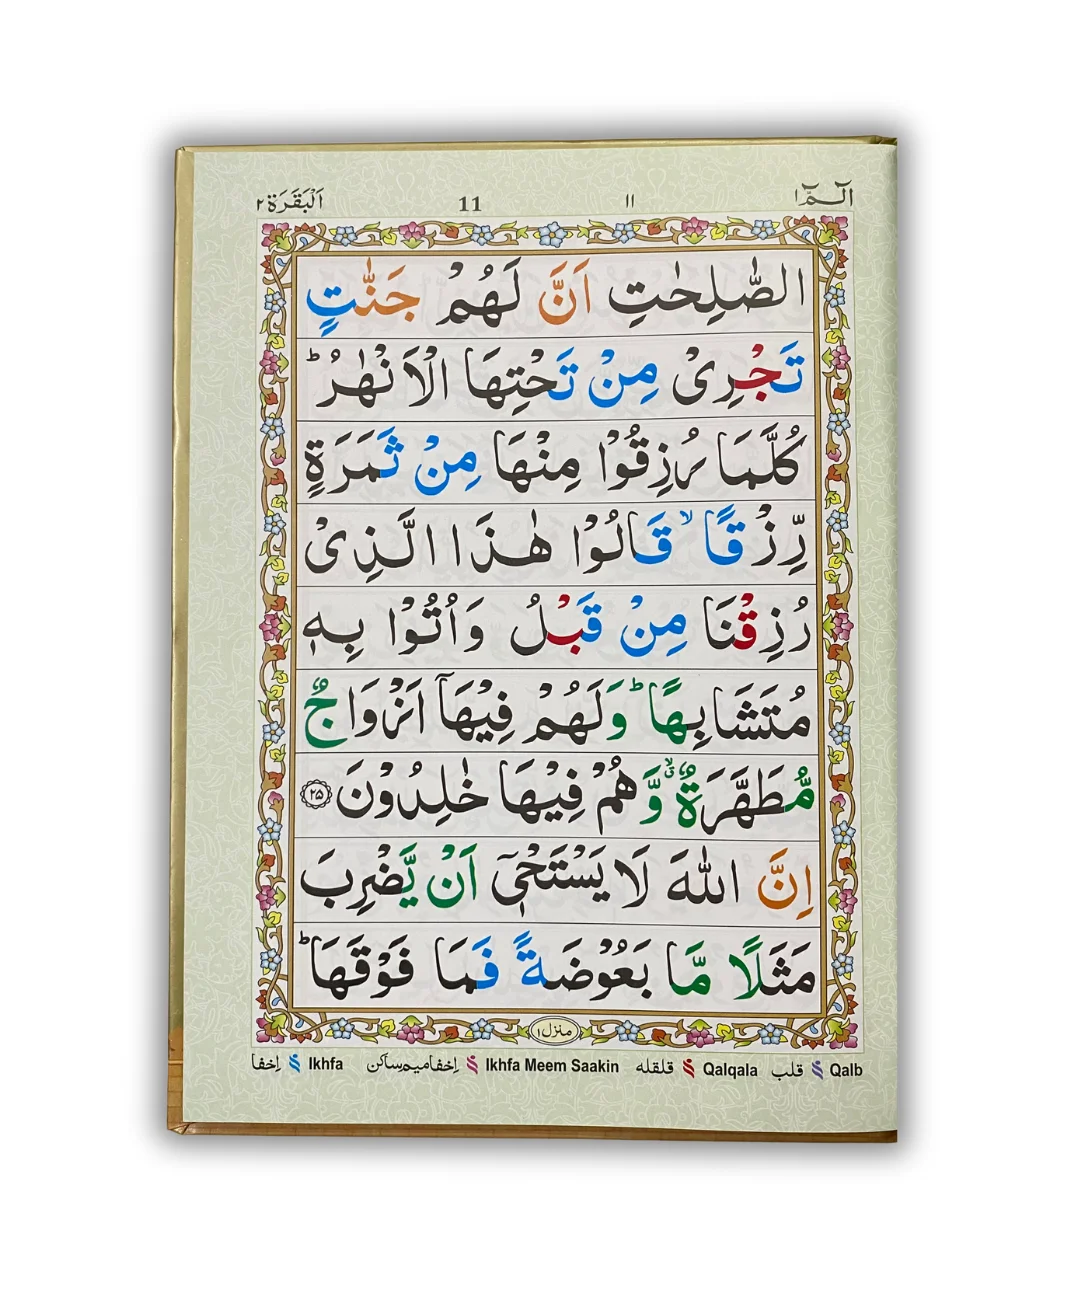 الٓـمّٓ ١ ١١ 11 اَلْبَقَرَة ٢
الصّٰلِحٰتِ اَنَّ لَهُمْ جَنّٰتٍ
تَجْرِىْ مِنْ تَحْتِهَا الْاَنْهٰرُ ؕ
كُلَّمَا رُزِقُوْا مِنْهَا مِنْ ثَمَرَةٍ
رِّزْقًا ۙ قَالُوْا هٰذَا الَّذِىْ
رُزِقْنَا مِنْ قَبْلُ وَاُتُوْا بِهٖ
مُتَشَابِهًا ؕ وَلَهُمْ فِيْهَآ اَزْوَاجٌ
مُّطَهَّرَةٌ ۙ وَّهُمْ فِيْهَا خٰلِدُوْنَ ۝٢٥
اِنَّ اللّٰهَ لَا يَسْتَحْىٖٓ اَنْ يَّضْرِبَ
مَثَلًا مَّا بَعُوْضَةً فَمَا فَوْقَهَا ؕ
منزل ١
اِخفا Ikhfa اِخفا میم ساکن Ikhfa Meem Saakin قلقله Qalqala قلب Qalb